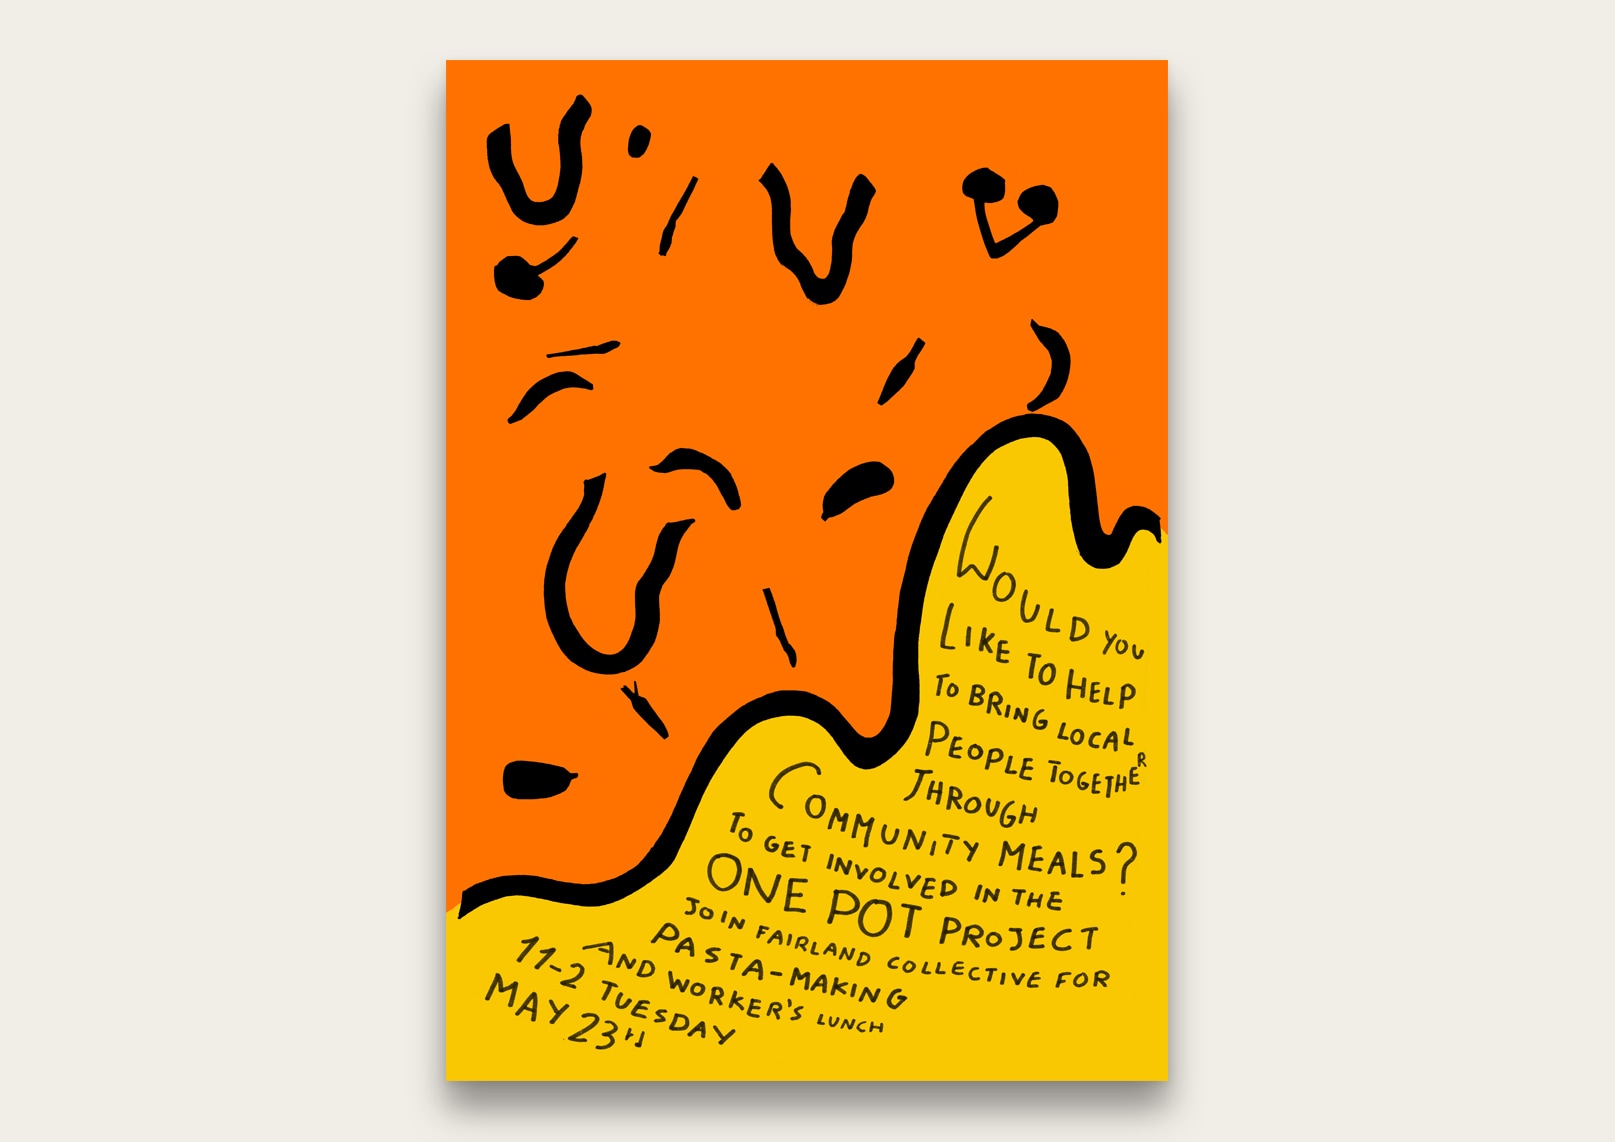 WOULD YOU
LIKE TO HELP
TO BRING LOCAL
PEOPLE TOGETHER
THROUGH
COMMUNITY MEALS?
TO GET INVOLVED IN THE
ONE POT PROJECT
JOIN FAIRLAND COLLECTIVE FOR
PASTA-MAKING
AND WORKER'S LUNCH
11-2 TUESDAY
MAY 23rd